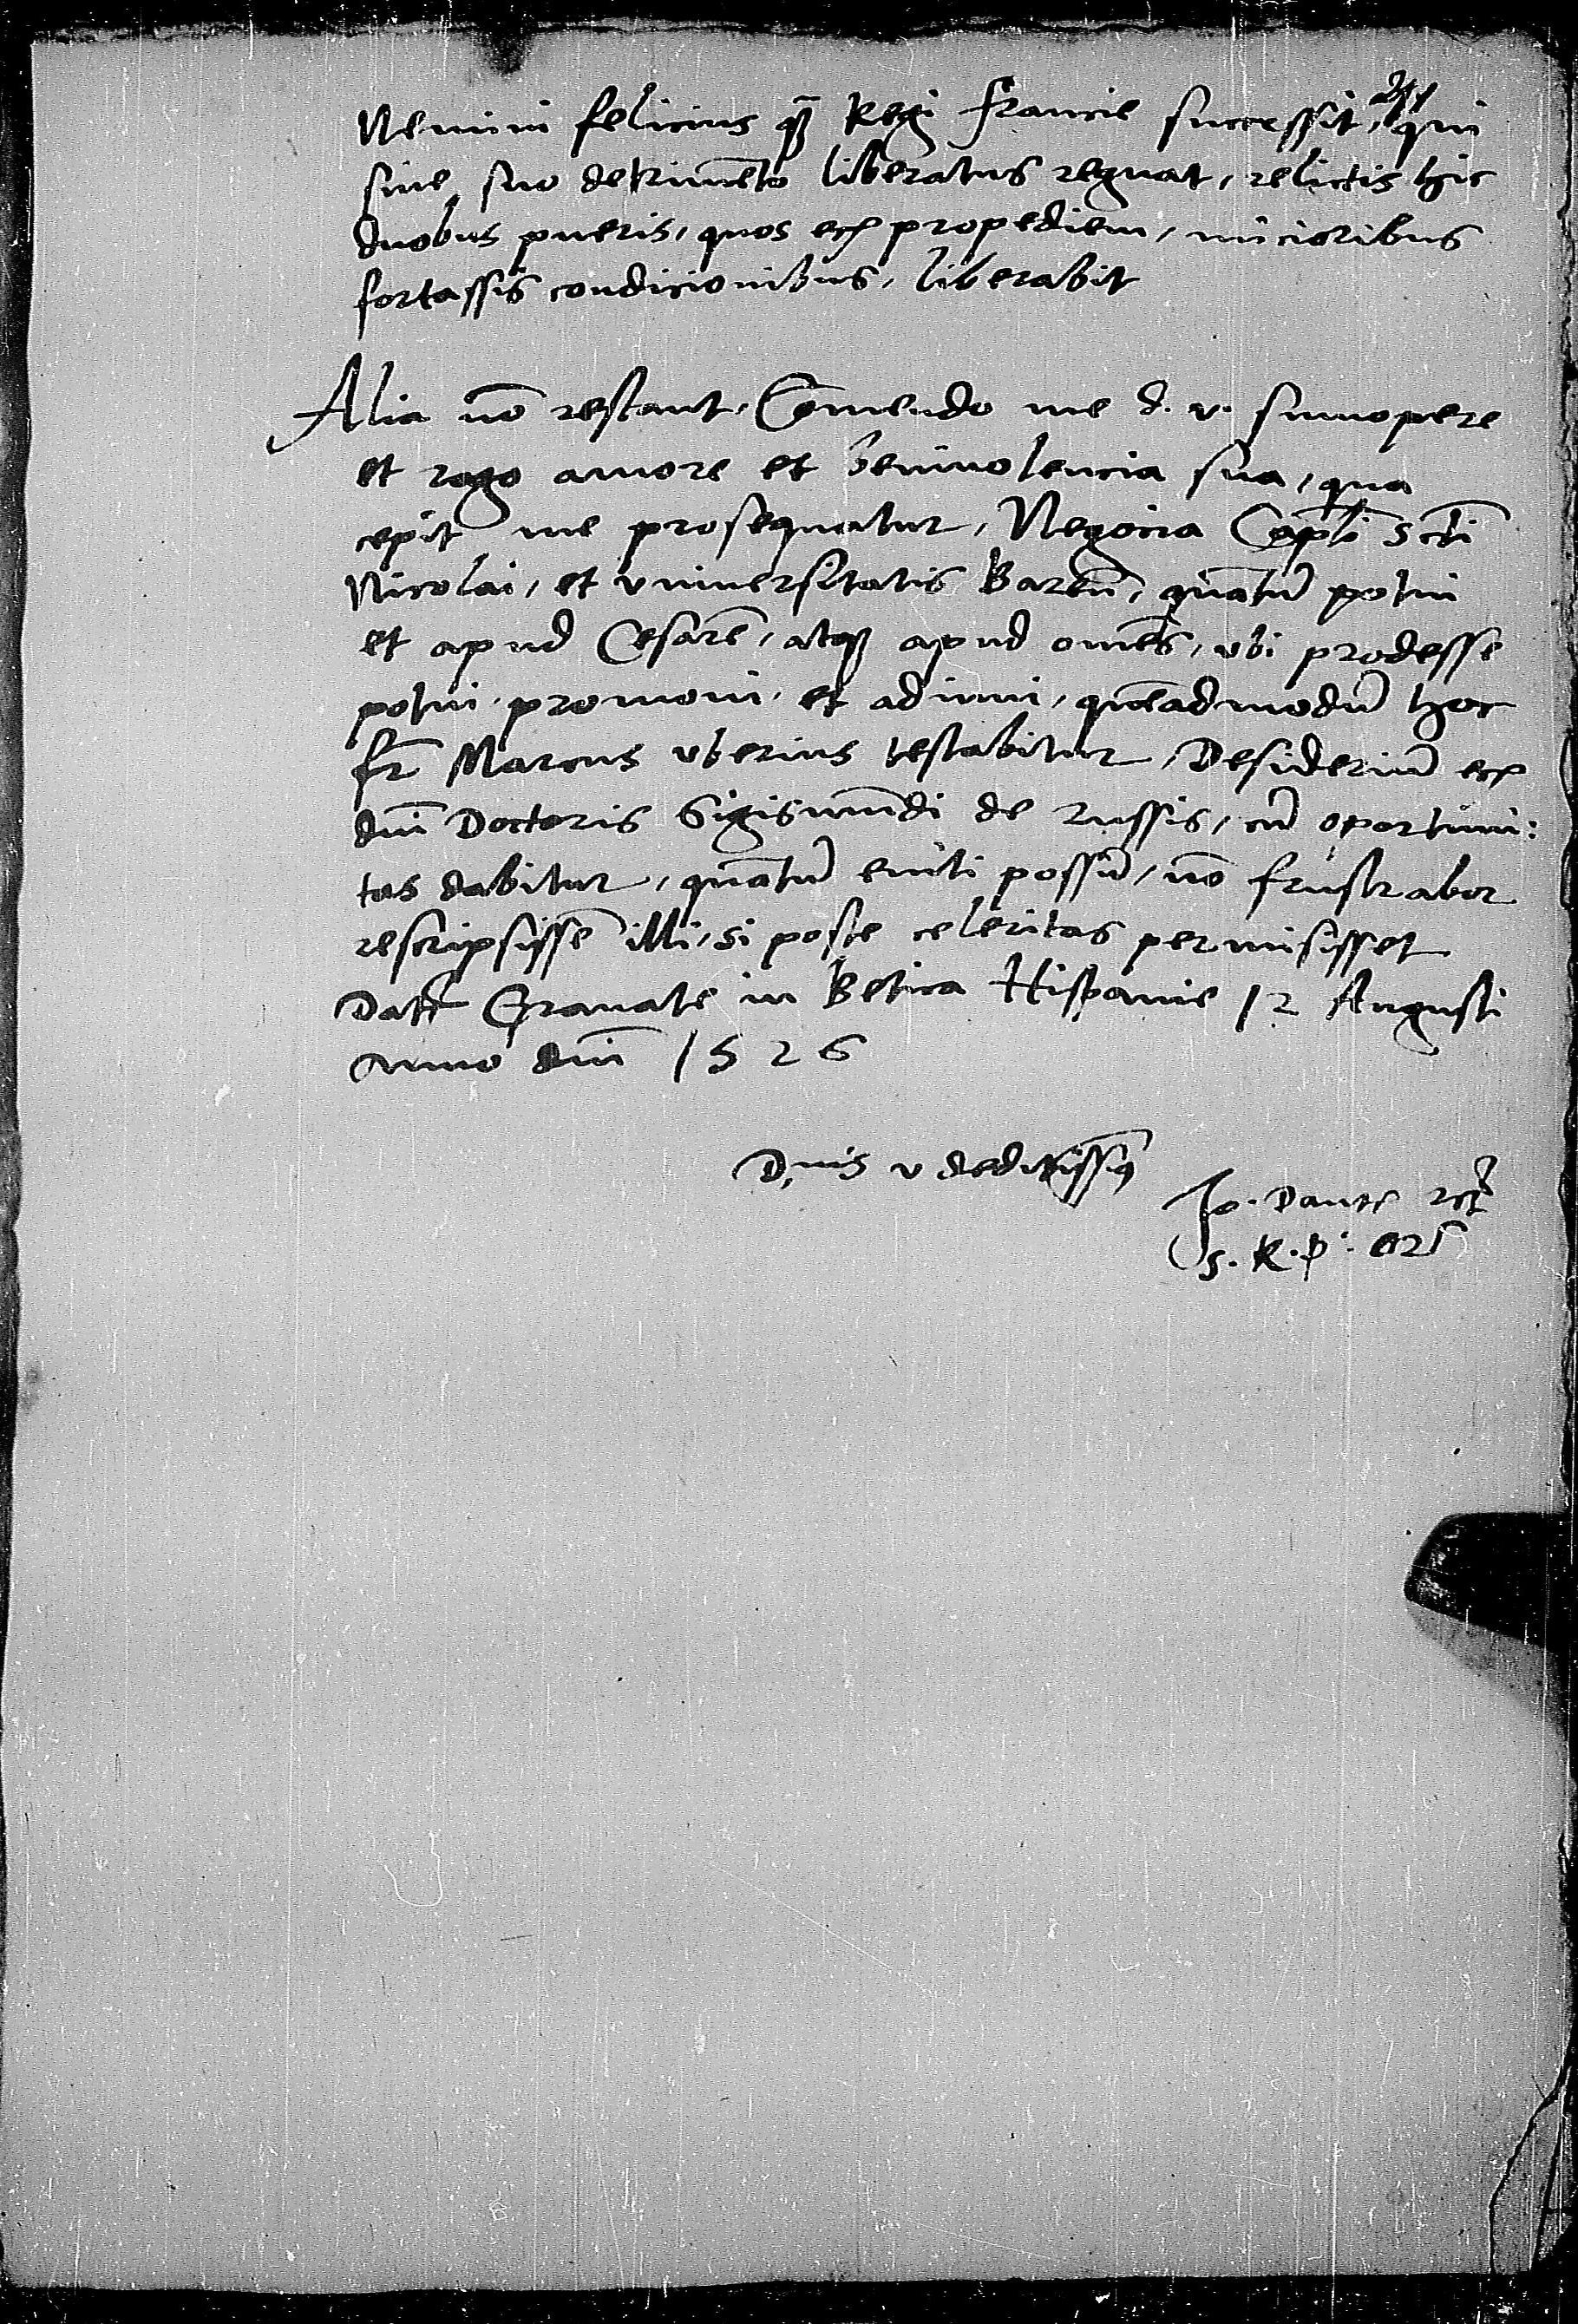 Nemini felicius qȝ Regi francie successit, qui
sine suo detrimēto liberatus regnat, relictis hic
duobus pueris, quos ecꝫ propediem, micioribus
fortassis condicionibus, liberabit
Alia nō restant, Cōmendo me d. v. sūmopere
et rogo amore et benivolencia sua, qua
cepit me prosequatur, Negocia Capli Scti
Nicolai, et vniversitatis Bareñ, quātū potui
et apud Cesarē, atqȝ apud omēs, vbi prodesse
potui, promovi, et adiuvi, quēadmodū hoc
fr̄ Marcus vberius testabitur, Desideriū ecꝫ
dn̄i Doctoris Sigismūdi de russis, cū oportuni:
tas dabitur, quātū eniti possū, nō frustrabor
rescripsissē illi, si poste celeritas permisisset
Datr̄ Granate in Betica Hispanie 12 Augusti
Anno dn̄i 1526
D,nis v deditissimꝰ
Jo. Dantꝫ
S. R. P. orʃ